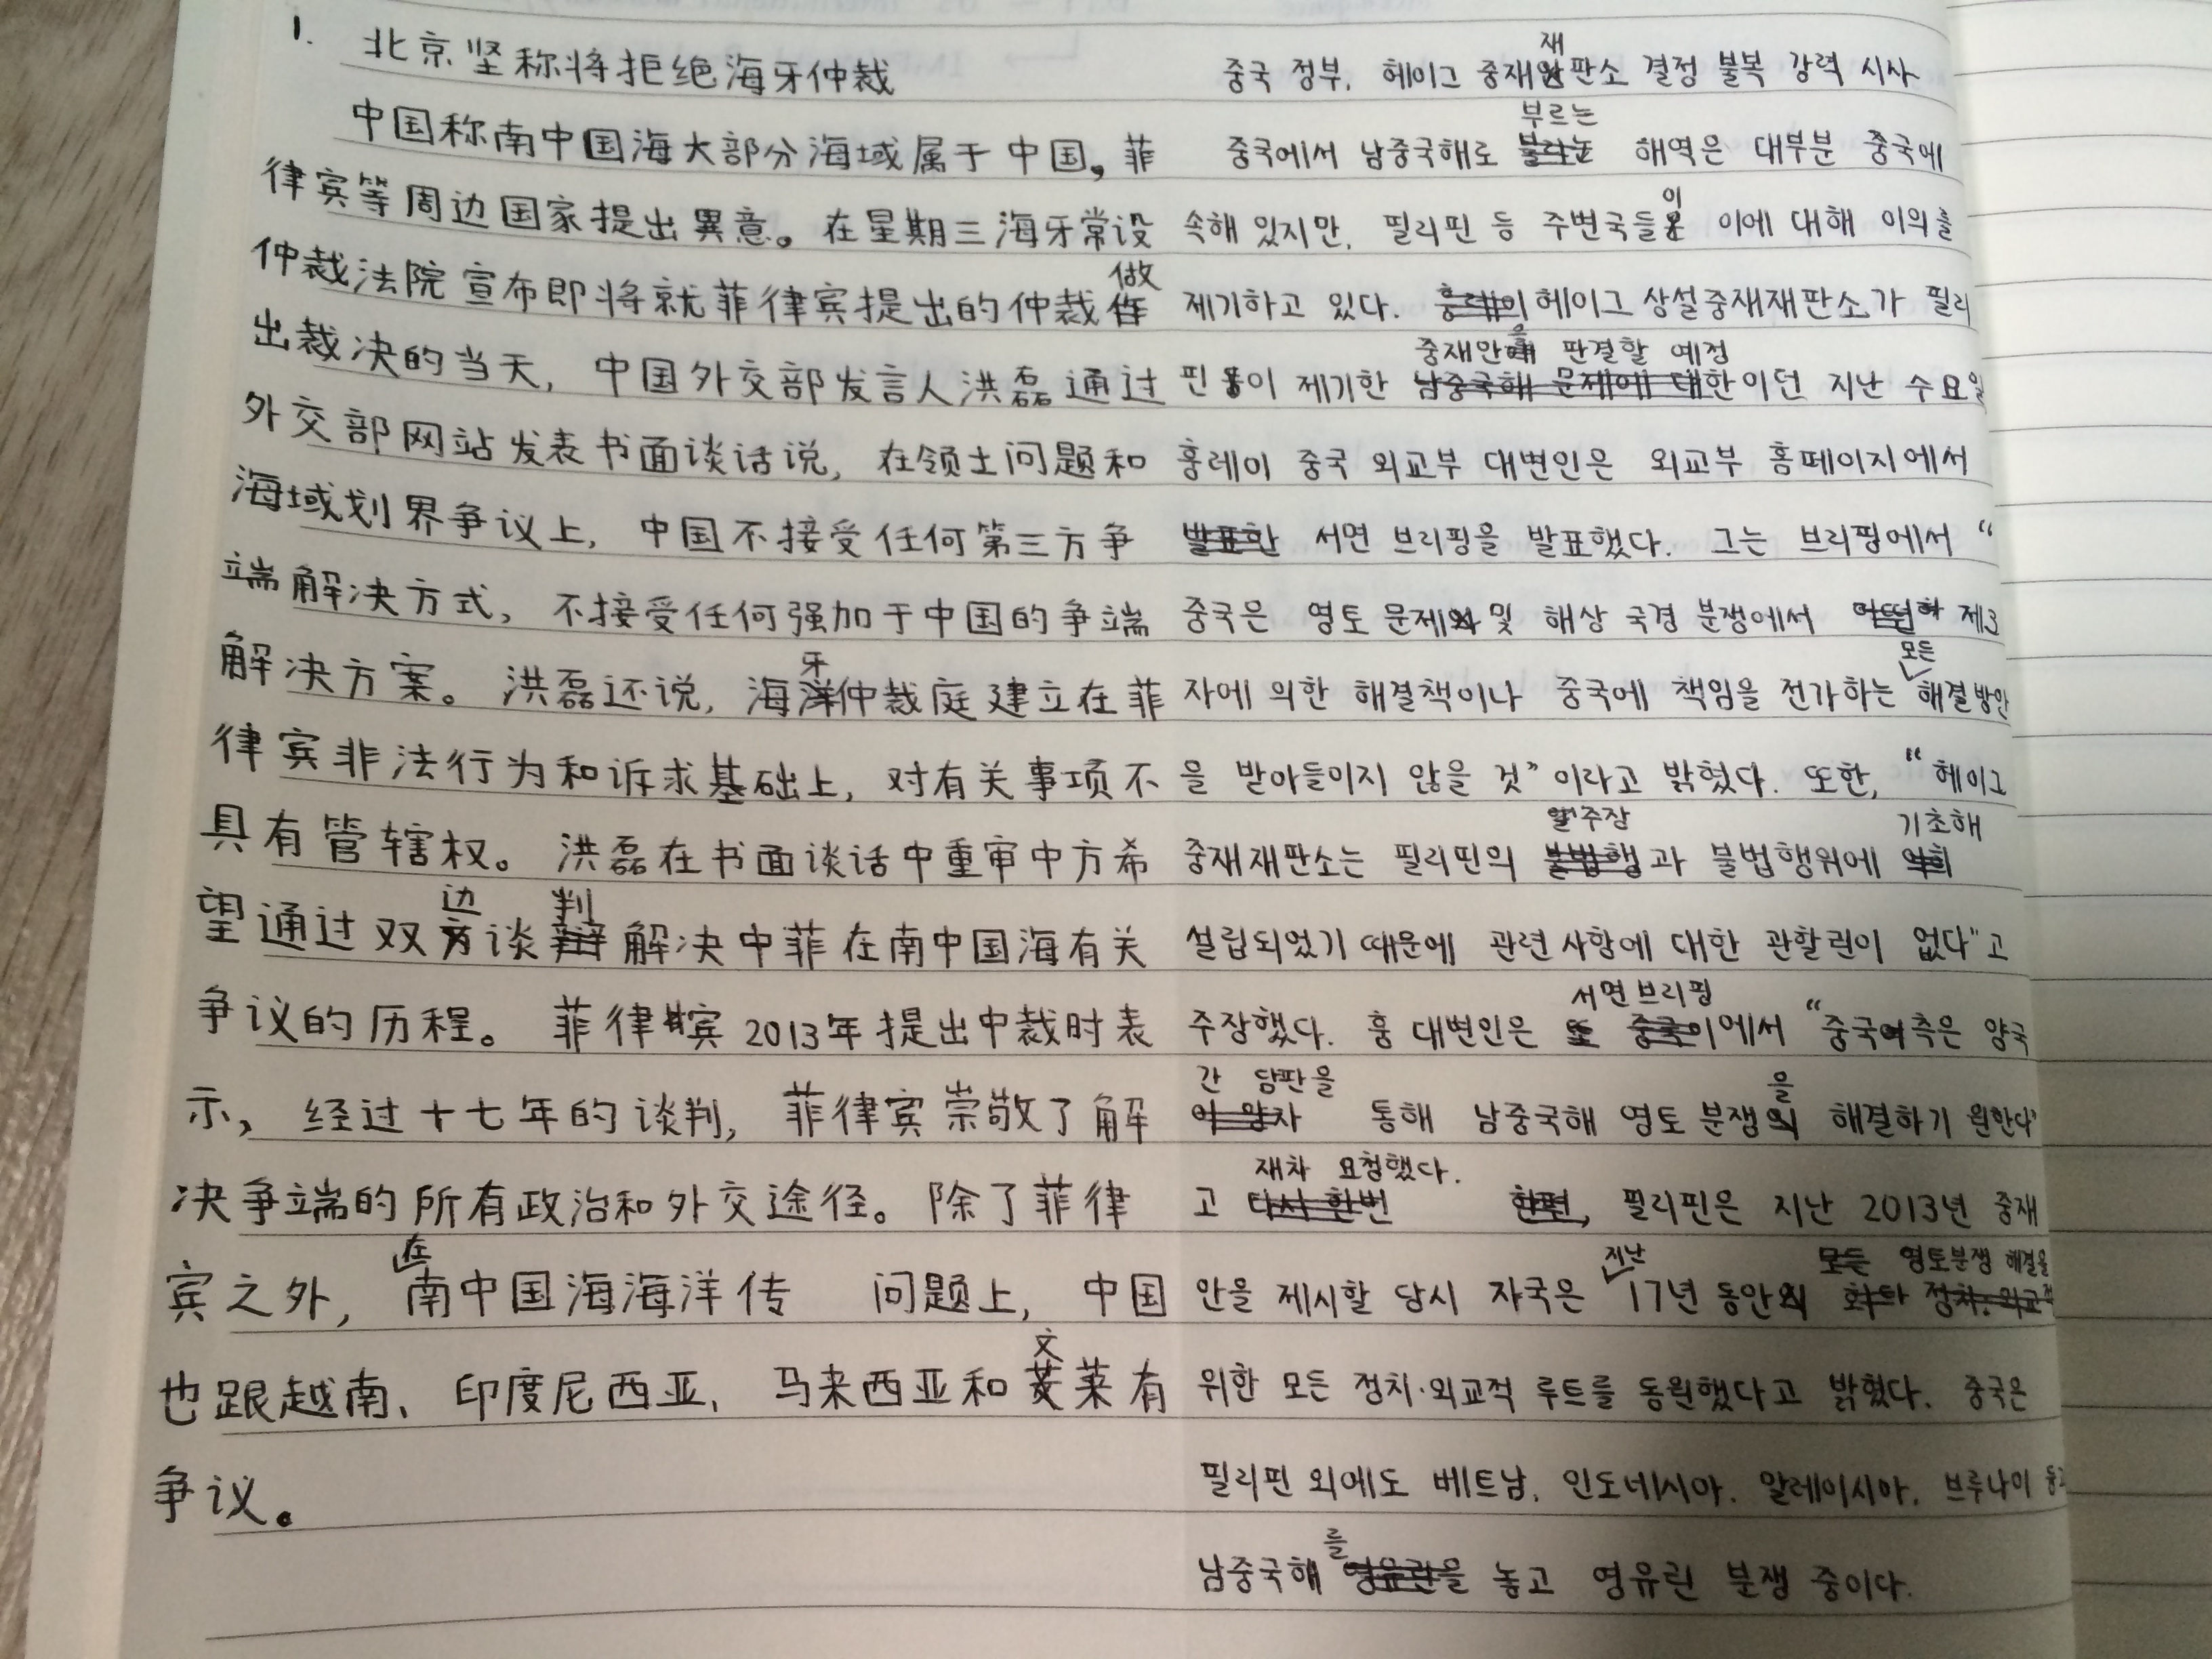 1.
北京坚称将拒绝海牙仲裁
中国称南中国海大部分海域属于中国，菲
律宾等周边国家提出異意。在星期三海牙常设
仲裁法院宣布即将就菲律宾提出的仲裁做
出裁决的当天，中国外交部发言人洪磊通过
外交部网站发表书面谈话说，在领土问题和
海域划界争议上，中国不接受任何第三方争
端解决方式，不接受任何强加于中国的争端
解决方案。洪磊还说，海牙仲裁庭建立在菲
律宾非法行为和诉求基础上，对有关事项不
具有管辖权。洪磊在书面谈话中重审中方希
望通过双边谈判解决中菲在南中国海有关
争议的历程。菲律宾2013年提出中裁时表
示，经过十七年的谈判，菲律宾崇敬了解
决争端的所有政治和外交途径。除了菲律
宾之外，在南中国海海洋传 问题上，中国
也跟越南、印度尼西亚、马来西亚和文莱有
争议。
중국 정부, 헤이그 중재재판소 결정 불복 강력 시사
중국에서 남중국해로 부르는 해역은 대부분 중국에
속해 있지만, 필리핀 등 주변국들이 이에 대해 이의를
제기하고 있다. 헤이그 상설중재재판소가 필리
핀이 제기한 중재안을 판결할 예정이던 지난 수요일
훙레이 중국 외교부 대변인은 외교부 홈페이지에서
서면 브리핑을 발표했다. 그는 브리핑에서 “
중국은 영토 문제 및 해상 국경 분쟁에서 제3
자에 의한 해결책이나 중국에 책임을 전가하는 모든 해결방안
을 받아들이지 않을 것”이라고 밝혔다. 또한, “헤이그
중재재판소는 필리핀의 주장과 불법행위에 기초해
설립되었기 때문에 관련 사항에 대한 관할권이 없다”고
주장했다. 훙 대변인은 서면브리핑에서 “중국측은 양국
간 담판을 통해 남중국해 영토 분쟁을 해결하기 원한다”
고 재차 요청했다. 필리핀은 지난 2013년 중재
안을 제시할 당시 자국은 지난 17년 동안 영토분쟁 해결을
위한 모든 정치·외교적 루트를 동원했다고 밝혔다. 중국은
필리핀 외에도 베트남, 인도네시아, 말레이시아, 브루나이
남중국해를 놓고 영유권 분쟁 중이다.